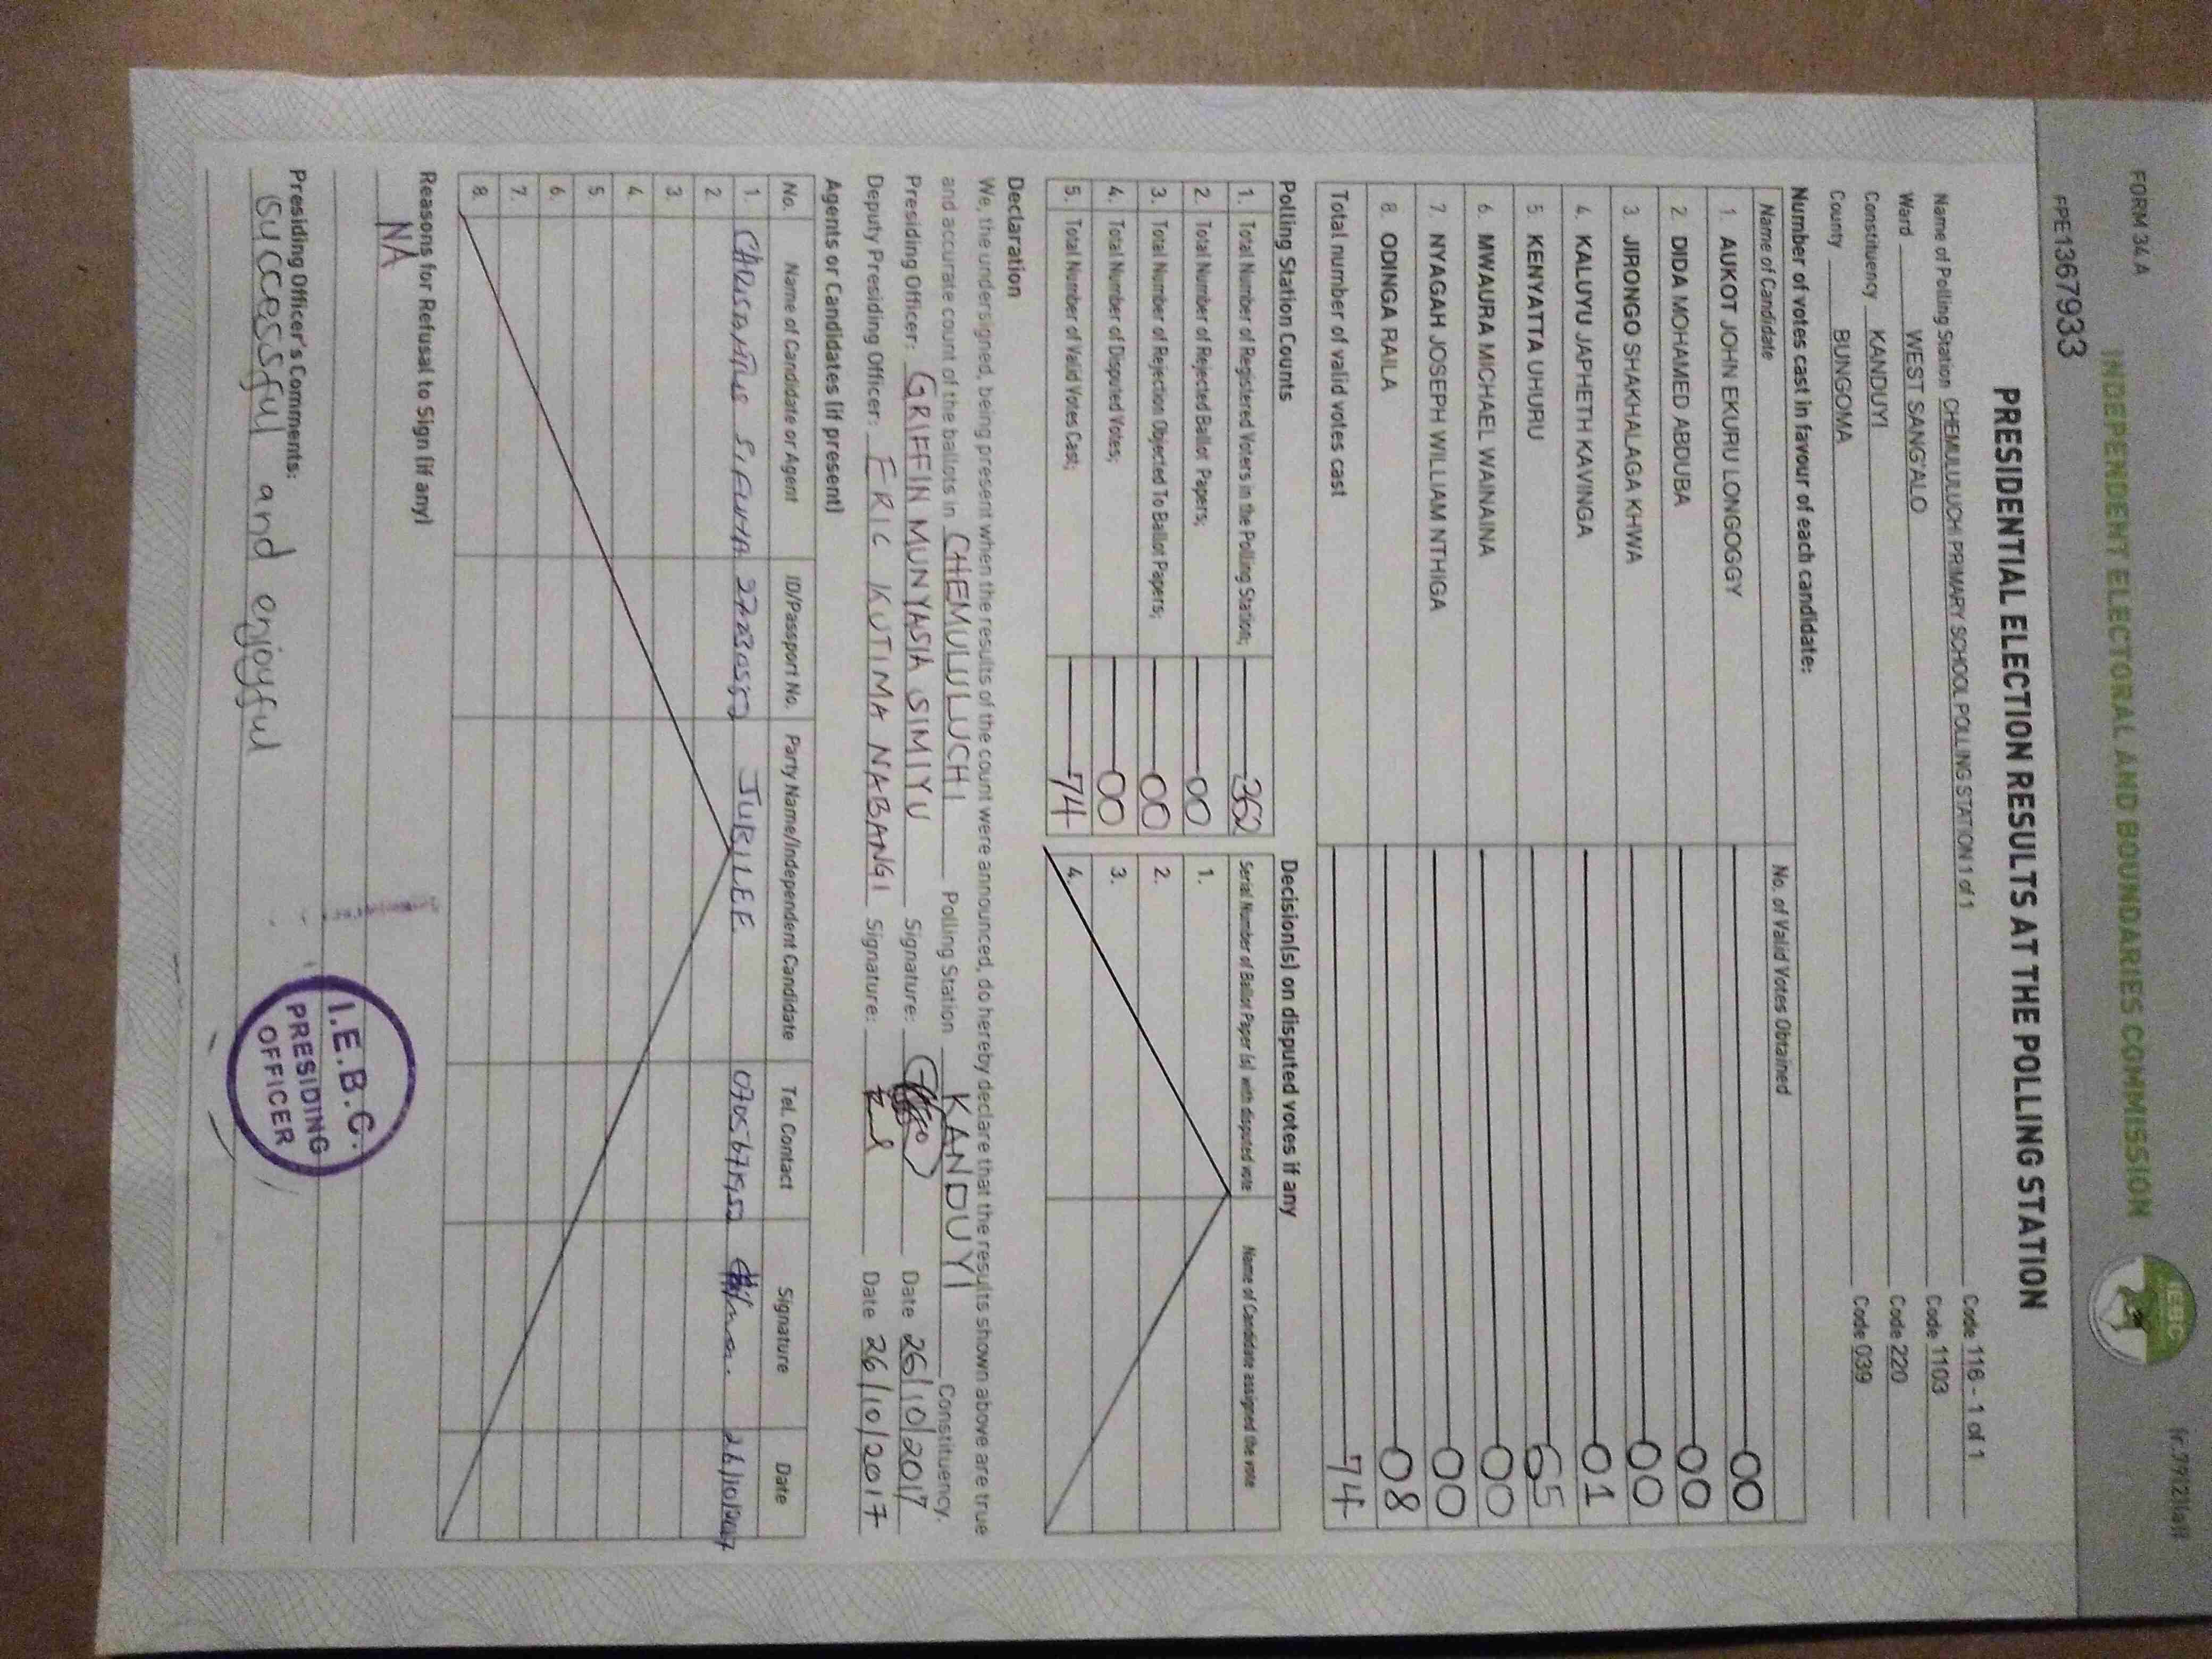 FORM 34 A
INDEPENDENT ELECTORAL AND BOUNDARIES COMMISSION
IEBC
FPE1367933
PRESIDENTIAL ELECTION RESULTS AT THE POLLING STATION
Name of Polling Station CHEMULUCHI PRIMARY SCHOOL POLLING STATION 1 of 1 Code 116 - 1 of 1
Ward WEST SANG'ALO Code 1103
Constituency KANDUYI Code 220
County BUNGOMA Code 039
Number of votes cast in favour of each candidate:
Name of Candidate No. of Valid Votes Obtained
1. AUKOT JOHN EKURU LONGOGGY 00
2. DIDA MOHAMED ABDUBA 00
3. JIRONGO SHAKHALAGA KHWA 00
4. KALUYU JAPHETH KAVINGA 01
5 KENYATTA UHURU 65
6. MWAURA MICHAEL WAINAINA 00
7. NYAGAH JOSEPH WILLIAM NTHIGA 00
8. ODINGA RAILA 08
Total number of valid votes cast 74
Polling Station Counts
1. Total Number of Registered Voters in the Polling Station; 362
2. Total Number of Rejected Ballot Papers; 00
3. Total Number of Rejection Objected To Ballot Papers; 00
4. Total Number of Disputed Votes; 00
5. Total Number of Valid Votes Cast; 74
Decision(s) on disputed votes if any
Serial Number of Ballot Paper (s) with disputed vote Name of Candidate assigned the vote
1.
2.
3.
4.
Declaration
We, the undersigned, being present when the results of the count were announced, do hereby declare that the results shown above are true
and accurate count of the ballots in CHEMULULUCHI Polling Station KANDUYI Constituency.
Presiding Officer: GRIFFIN MUNYASIA SIMIYU Signature: Date 26/10/2017
Deputy Presiding Officer: ERIC KUTIMA NABANGI Signature: Date 26/10/2017
Agents or Candidates (if present)
No. Name of Candidate or Agent ID/Passport No. Party Name/Independent Candidate Tel. Contact Signature Date
1. JUBILEE 26/10/2017
2
3
4
5.
6.
7.
8.
Reasons for Refusal to Sign (if any)
NA
Presiding Officer's Comments:
Successful and enjoyful
I.E.B.C.
PRESIDING
OFFICER